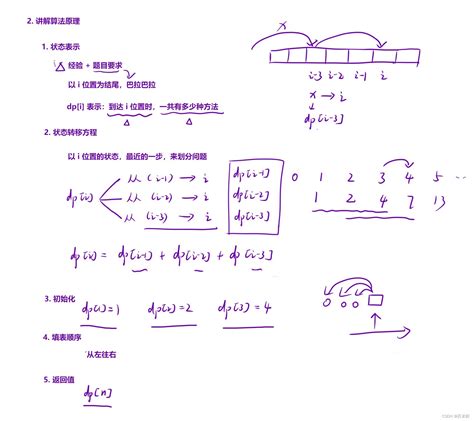 2. 讲解算法原理
1. 状态表示
经验 + 题目要求
以 i 位置为结尾，巴拉巴拉
dp[i] 表示：到达 i 位置时，一共有多少种方法
x
i-3 i-2 i-1 i
x → i
dp[i-3]
2. 状态转移方程
以 i 位置的状态，最近的一步，来划分问题
dp[i]
从 (i-1) → i dp[i-1]
从 (i-2) → i dp[i-2]
从 (i-3) → i dp[i-3]
0 1 2 3 4 5 ...
1 2 4 7 13
dp[i] = dp[i-1] + dp[i-2] + dp[i-3]
3. 初始化
dp[1]=1 dp[2]=2 dp[3]=4
4. 填表顺序
从左往右
5. 返回值
dp[n]